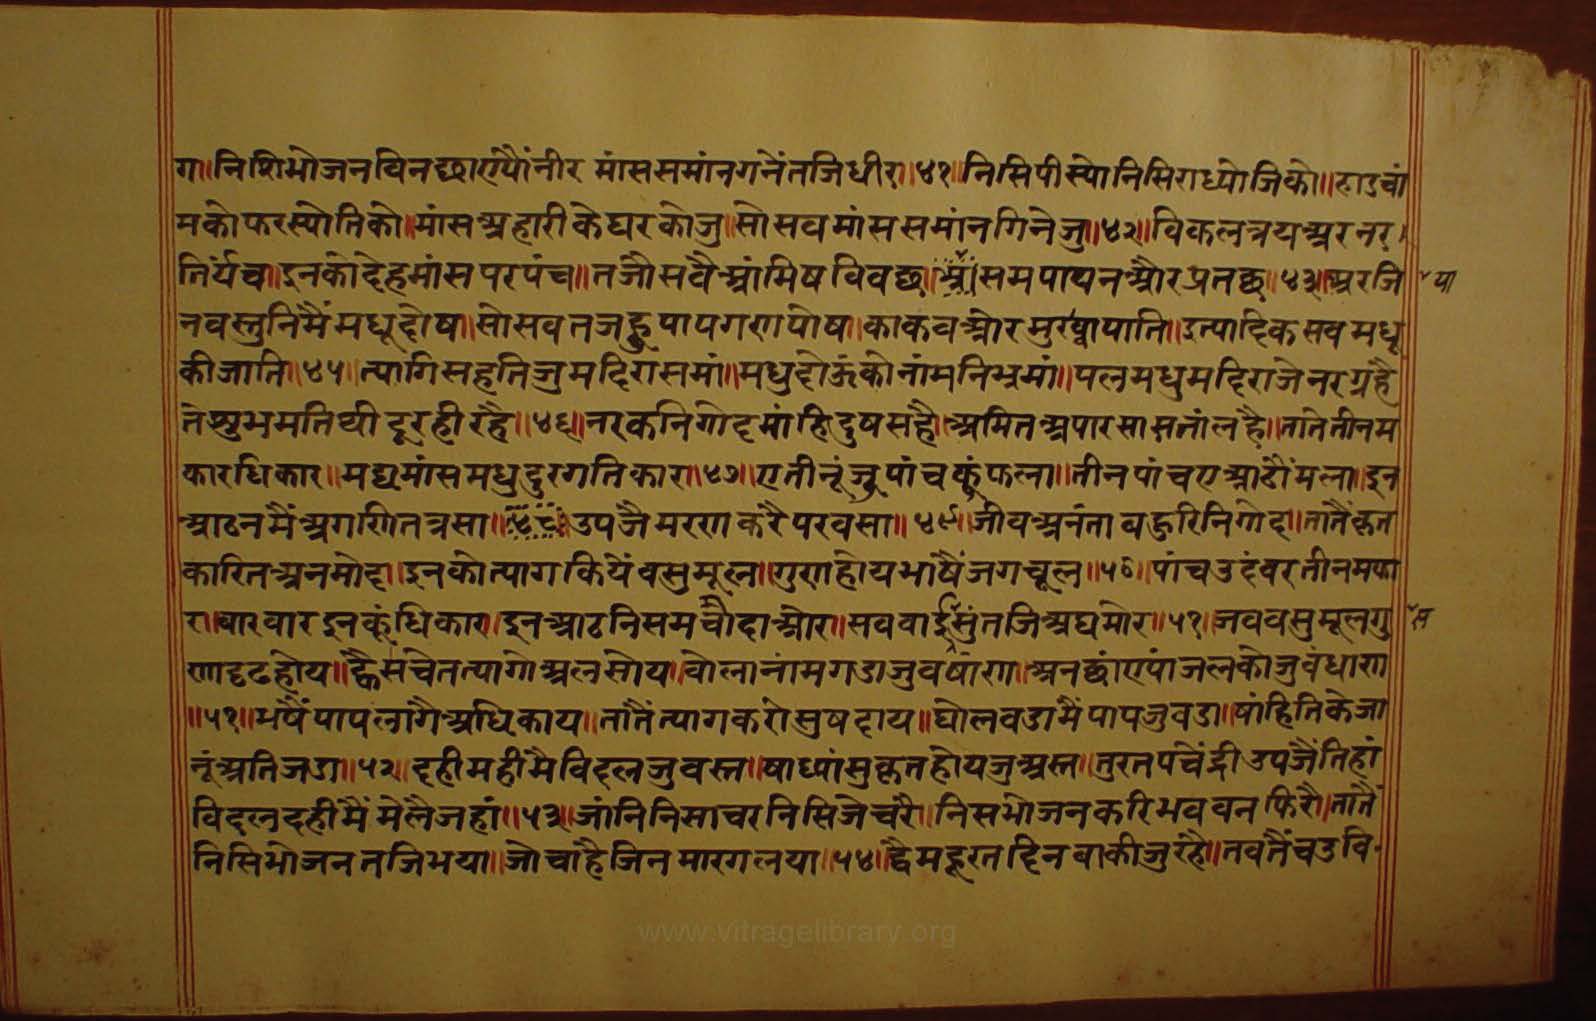 ग॥निशिभोजनविनछाएंपौंनीर मांससमांनगनेंतजिधीर॥४१॥निसिपीस्योनिसिराध्योजिको॥हाडचां
मकोफरस्योतिको॥मांसअहारीकेघरकोजु॥सोसवमांससमांनगिनेजु॥४२॥विकलत्रयअरनर
तिर्यच॥इनकोदेहमांसपरपंच॥तजौसवैआंमिषविवछ॥समपापनऔरप्रतछ॥४३॥अरजि पा
नवस्तुनिमैंमधूदोष॥सोसवतजहुपापगणपोष॥काकवऔरमुरष्वापाति॥इत्यादिकसवमधू
कीजाति॥४५॥त्यागिसहतिजुमदिरासमां॥मधुदोऊंकोनांमनिभ्रमां॥पलमधुमदिराजेनरग्रहै
तेशुभमतिथीदूरहीरहै॥४६॥नरकनिगोदमांहिदुषसहै॥अमितअपारसासतांलहै॥तातेतीनम
कारधिकार॥मद्यमांसमधुदुरगतिकार॥४७॥एतीनूंजुपांचकुंफला॥तीनपांचएआठौंमला॥इन
आठनमैंअगणितत्रसा॥४८॥उपजैमरणकरैपरवसा॥४९॥जीवअनंतावहुरिनिगोद॥तातैंकृत
कारितअनमोद॥इनकोत्यागकियेंवसुमूल॥गुणहोयभाषैंजगचूल॥५०॥पांचउदंवरतीनमका
र॥वारवारइनकुंधिकार॥इनआठनिसमचौदाऔर॥सववाईसुंतजिअघमोर॥५१॥जववसुमूलगु स
णदृढहोय॥ह्वैसचेतत्यागोअलसोय॥वोलानांमगडाजुवषांण॥अनछांएपांजलकोजुवंधाण
॥५१॥भषैंपापलागैअधिकाय॥तातैंत्यागकरोसुषदाय॥घोलवडामैंपापजुवडा॥षांहितिकेजा
नूंअतिजडा॥५२॥दहीमहीमैविदलजुवस्त॥षाध्यांसुकृतहोयजुअस्त॥तुरतपचेंद्रीउपजैंतिहां
विदलदहीमैंमेलैजहां॥५३॥जांनिनिसाचरनिसिजेचरै॥निसभोजनकरिभववनफिरै॥तातैं
निसिभोजनतजिभया॥जोचाहैजिनमारगलया॥५४॥द्वैमहूरतदिनवाकीजुरहै॥तवतैंचउवि-
www.vitragelibrary.org